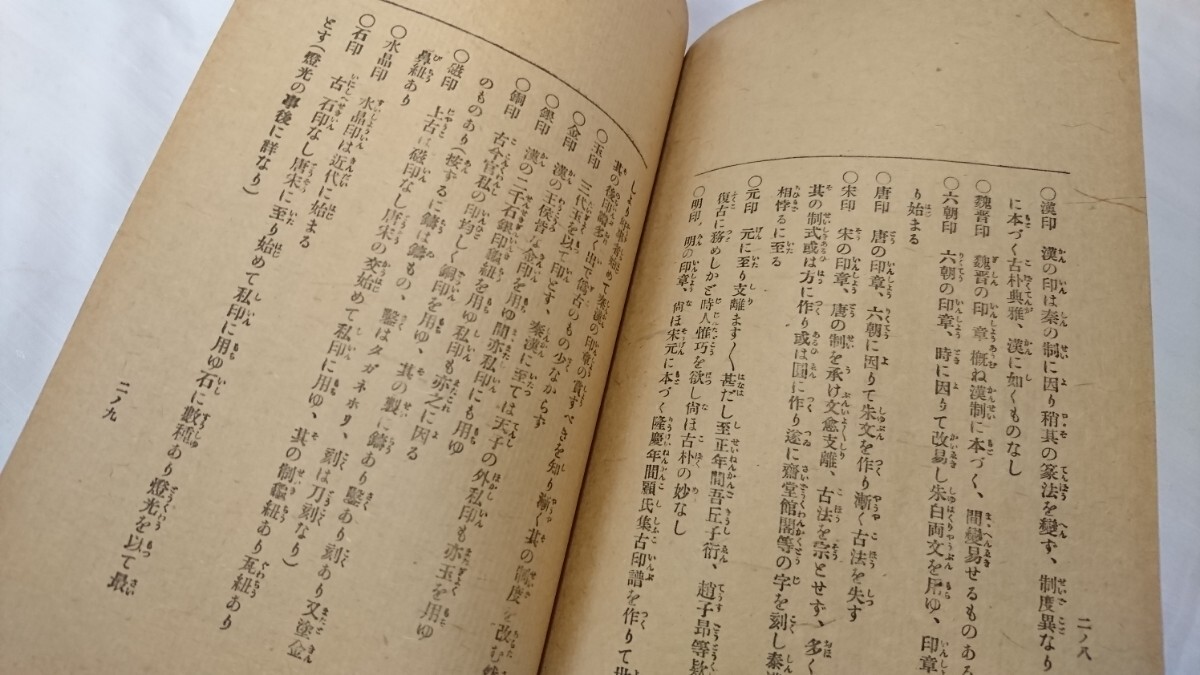 二ノ八
〇漢印 漢の印は秦の制に因り稍其の篆法を變ず、制度異なり
に本づく古朴典雅、漢に如くものなし
〇魏晋印 魏晋の印章概ね漢制に本づく、間變易せるものある
〇六朝印 六朝の印章、時に因りて改易し朱白両文を用ゆ、印章
り始まる
〇唐印 唐の印章、六朝に因りて朱文を作り漸く古法を失す
〇宋印 宋の印章、唐の制を承け文愈支離、古法を宗とせず、多く
其の制式或は方に作り或は圓に作り遂に齋堂館閣等の字を刻し秦漢
相悖るに至る
〇元印 元に至り支離ます〱甚だし至正年間吾丘子衍、趙子昂等欵
復古に務めしかど時人惟巧を欲し尙ほ古朴の妙なし
〇明印、明の印章、尙ほ宋元に本づく隆慶年間顧氏集古印譜を作りて世
しより 始めて秦漢の印章の賞すべきを知り漸く其の制度を改む
其の後印譜多く出で倣古のもの少なからず
〇玉印 三代玉を以て印とす、秦漢に至ては天子の外私印も亦玉を用ゆ
〇金印 漢の王侯皆な金印を用ゆ間亦私印にも用ゆ
〇銀印 漢の二千石銀印龜紐を用ゆ私印も亦之に因る
〇銅印 古今官私の印均しく銅印を用ゆ、其の製に鑄あり鑿あり刻あり又塗金
のものあり(按するに鑄は鑄もの、鑿はタガネホリ、刻は刀刻なり)
〇磁印 上古は磁印なし唐宋の交始めて私印に用ゆ、其の制龜紐あり瓦紐あり
鼻紐あり
〇水晶印 水晶印は近代に始まる
〇石印 古へ石印なし唐宋に至り始めて私印に用ゆ石に數種あり燈光を以て最
とす(燈光の事後に詳なり)
二ノ九